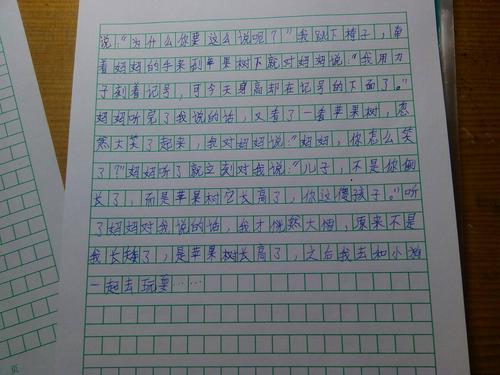 说:“为什么你要这么说呢?”我跳下椅子,牵
着妈妈的手来到苹果树下就对妈妈说:“我用刀
子刻着记号,可今天身高却在记号的下面了。”
妈妈听完了我说的话,又看了一看苹果树,忽
然大笑了起来,我对妈妈说:“妈妈,你怎么笑
了?”妈妈听了就立刻对我说:“儿子,不是你
长了,而是苹果树它长高了,你这傻孩子。”听
了妈妈对我说的话,我才恍然大悟,原来不是
我长矮了,是苹果树长高了,之后我去和小
一起去玩耍……